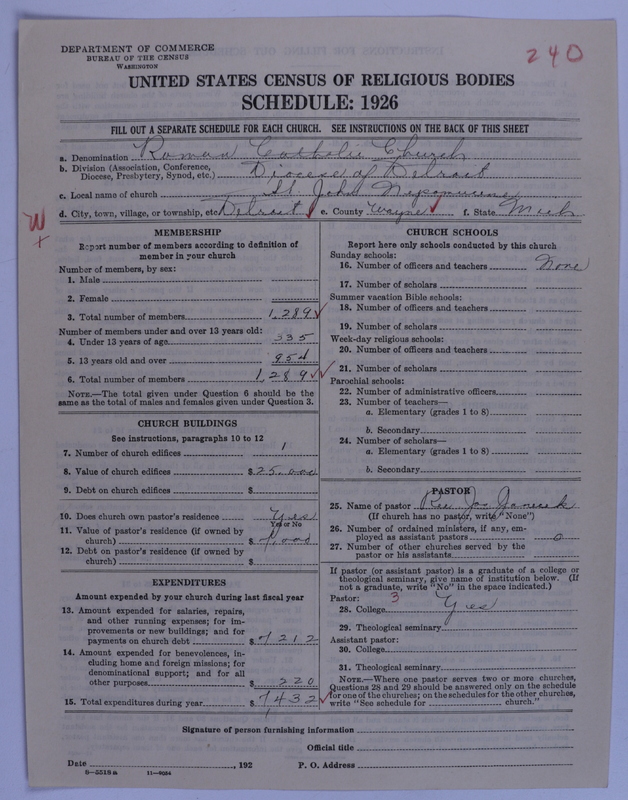 DEPARTMENT OF COMMERCE
BUREAU OF THE CENSUS
WASHINGTON
240
UNITED STATES CENSUS OF RELIGIOUS BODIES
SCHEDULE: 1926
FILL OUT A SEPARATE SCHEDULE FOR EACH CHURCH. SEE INSTRUCTIONS ON THE BACK OF THIS SHEET
a. Denomination Roman Catholic Church
b. Division (Association, Conference, Diocese, Presbytery, Synod, etc.) Diocese of Detroit
c. Local name of church St John Nepomucene
d. City, town, village, or township, etc. Detroit e. County Wayne f. State Mich
W
x
MEMBERSHIP
Report number of members according to definition of
member in your church
Number of members, by sex:
1. Male
2. Female
3. Total number of members 1,289
Number of members under and over 13 years old:
4. Under 13 years of age 335
5. 13 years old and over 954
6. Total number of members 1,289
NOTE.—The total given under Question 6 should be the
same as the total of males and females given under Question 3.
CHURCH BUILDINGS
See instructions, paragraphs 10 to 12
7. Number of church edifices 1
8. Value of church edifices $25,000
9. Debt on church edifices $
10. Does church own pastor's residence Yes
Yes or No
11. Value of pastor's residence (if owned by
church) $,000
12. Debt on pastor's residence (if owned by
church) $
EXPENDITURES
Amount expended by your church during last fiscal year
13. Amount expended for salaries, repairs,
and other running expenses; for im-
provements or new buildings; and for
payments on church debt $7212
14. Amount expended for benevolences, in-
cluding home and foreign missions; for
denominational support; and for all
other purposes $220
15. Total expenditures during year $7432
CHURCH SCHOOLS
Report here only schools conducted by this church
Sunday schools:
16. Number of officers and teachers None
17. Number of scholars
Summer vacation Bible schools:
18. Number of officers and teachers
19. Number of scholars
Week-day religious schools:
20. Number of officers and teachers
21. Number of scholars
Parochial schools:
22. Number of administrative officers
23. Number of teachers—
a. Elementary (grades 1 to 8)
b. Secondary
24. Number of scholars—
a. Elementary (grades 1 to 8)
b. Secondary
PASTOR
25. Name of pastor Rev Jos
(If church has no pastor, write "None")
26. Number of ordained ministers, if any, em-
ployed as assistant pastors 0
27. Number of other churches served by the
pastor or his assistants
If pastor (or assistant pastor) is a graduate of a college or
theological seminary, give name of institution below. (If
not a graduate, write "No" in the space indicated.)
Pastor: 3
28. College Yes
29. Theological seminary
Assistant pastor:
30. College
31. Theological seminary
NOTE.—Where one pastor serves two or more churches,
Questions 28 and 29 should be answered only on the schedule
for one of the churches; on the schedules for the other churches,
write "See schedule for church."
Signature of person furnishing information
Official title
Date , 192 P. O. Address
6-5518a 11-9084